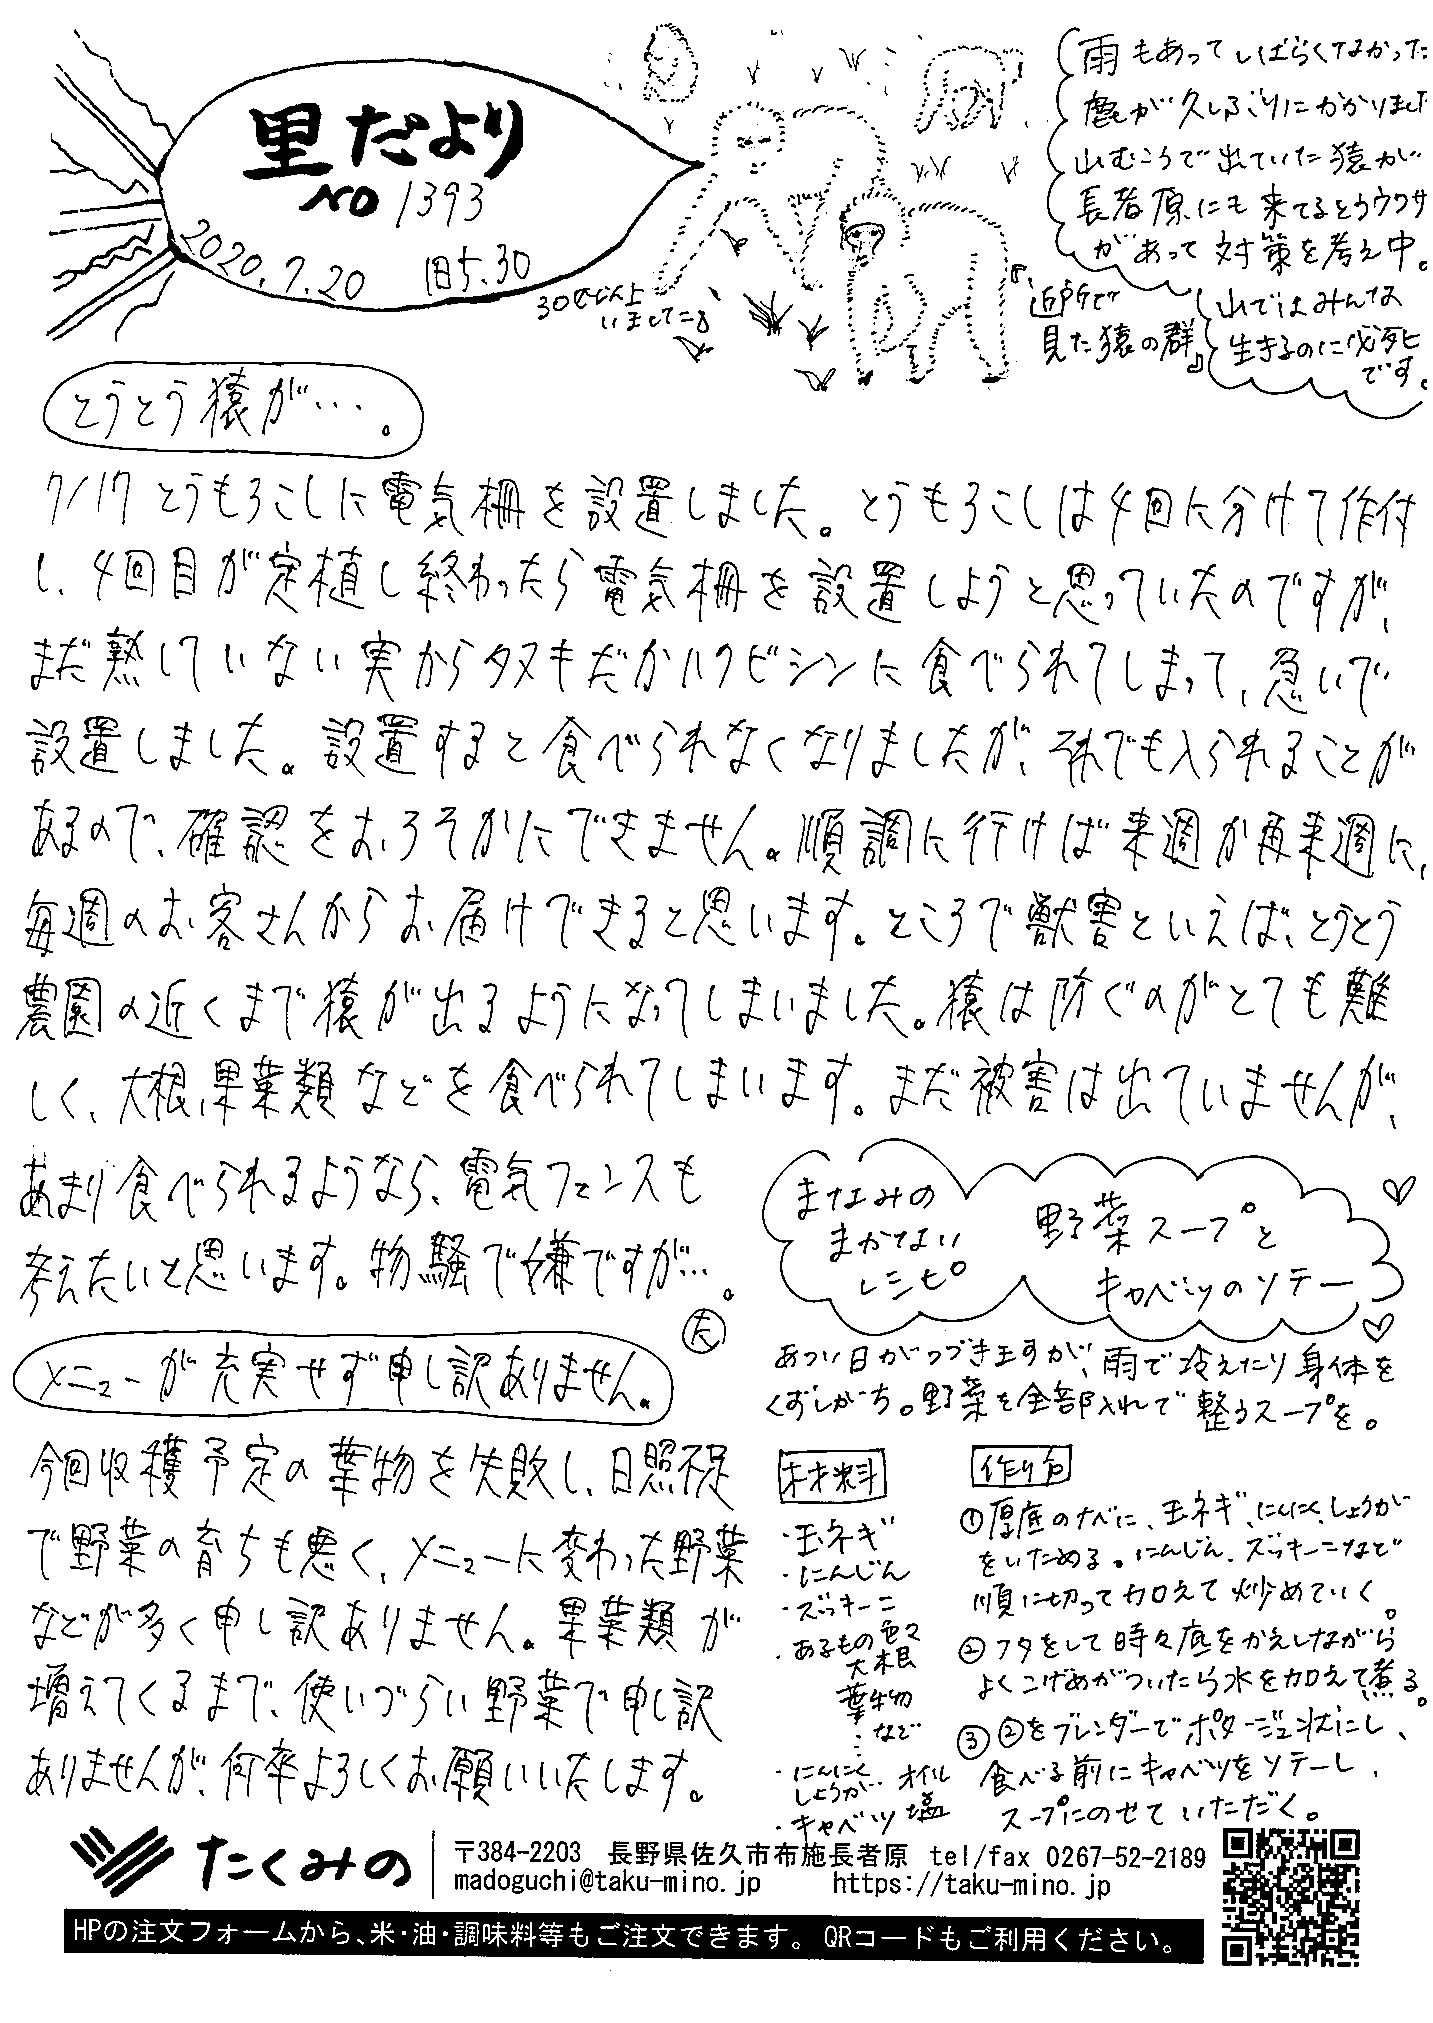 里だより
NO 1393
2020.7.20 旧5.30
雨もあってしばらくなかった
鹿が久しぶりにかかりました
山むこうで出ていた猿が
長者原にも来てるとうウワサ
があって対策を考え中。
山ではみんな
生きるのに必死
です。
30匹以上
いましてこる
『近所で
見た猿の群』
とうとう猿が…。
7/17とうもろこしに電気柵を設置しました。とうもろこしは4回に分けて作付
し、4回目が定植し終わったら電気柵を設置しようと思っていたのですが、
まだ熟していない実からタヌキだかハクビシンに食べられてしまって、急いで
設置しました。設置すると食べられなくなりましたが、それでも入られることが
あるので、確認をおろそかにできません。順調に行けば来週か再来週に、
毎週のお客さんからお届けできると思います。ところで獣害といえば、とうとう
農園の近くまで猿が出るようになってしまいました。猿は防ぐのがとても難
しく、大根、果菜類などを食べられてしまいます。まだ被害は出ていませんが、
あまり食べられるようなら、電気フェンスも
考えたいと思います。物騒で嫌ですが…。
メニューが充実せず申し訳ありません。
今回収穫予定の葉物を失敗し、日照不足
で野菜の育ちも悪く、メニューに変わった野菜
などが多く申し訳ありません。果菜類が
増えてくるまで、使いづらい野菜で申し訳
ありませんが、何卒よろしくお願いいたします。
まなみの
まかない
レシピ
野菜スープと
キャベツのソテー
あつい日がつづきますが、雨で冷えたり身体を
くずしがち。野菜を全部入れて整うスープを。
材料
・玉ネギ
・にんじん
・ズッキーニ
・あるもの色々
大根
葉物
など
・にんにく
しょうが… オイル
・キャベツ 塩
作り方
①厚底のナベに、玉ネギ、にんにく、しょうが
をいためる。にんじん、ズッキーニなど
順に切って加えて炒めていく。
②フタをして時々底をかえしながら
よくこげめがついたら水を加えて煮る。
③②をブレンダーでポタージュ状にし、
食べる前にキャベツをソテーし、
スープにのせていただく。
たくみの
〒384-2203 長野県佐久市布施長者原 tel/fax 0267-52-2189
madoguchi@taku-mino.jp https://taku-mino.jp
HPの注文フォームから、米・油・調味料等もご注文できます。QRコードもご利用ください。